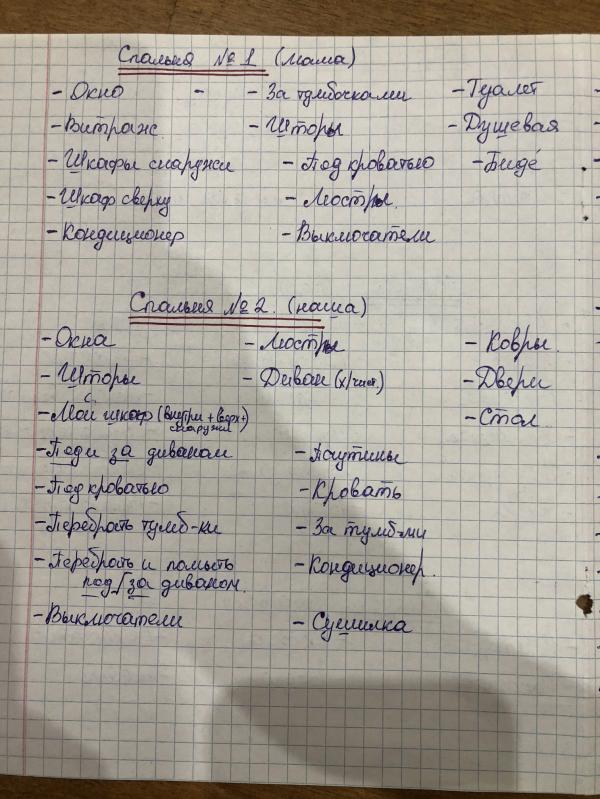 Спальня №1 (мама)
- Окно - - За тумбочками - Туалет
- Витраж. - Шторы - Душевая
- Шкафы снаружи - Под кроватью - Бидé
- Шкаф сверху - Люстры.
- Кондиционер - Выключатели
Спальня №2. (наша)
- Окна - Люстры - Ковры.
- Шторы - Диван (х/чист.) - Двери
- Мой шкаф (внутри + верх + снаружи) - Стол
- Под и за диваном - Паутины
- Под кроватью - Кровать
- Перебрать тумб-ки - За тумб-ми
- Перебрать и помыть - Кондиционер.
под/за диваном.
- Выключатели - Сушилка